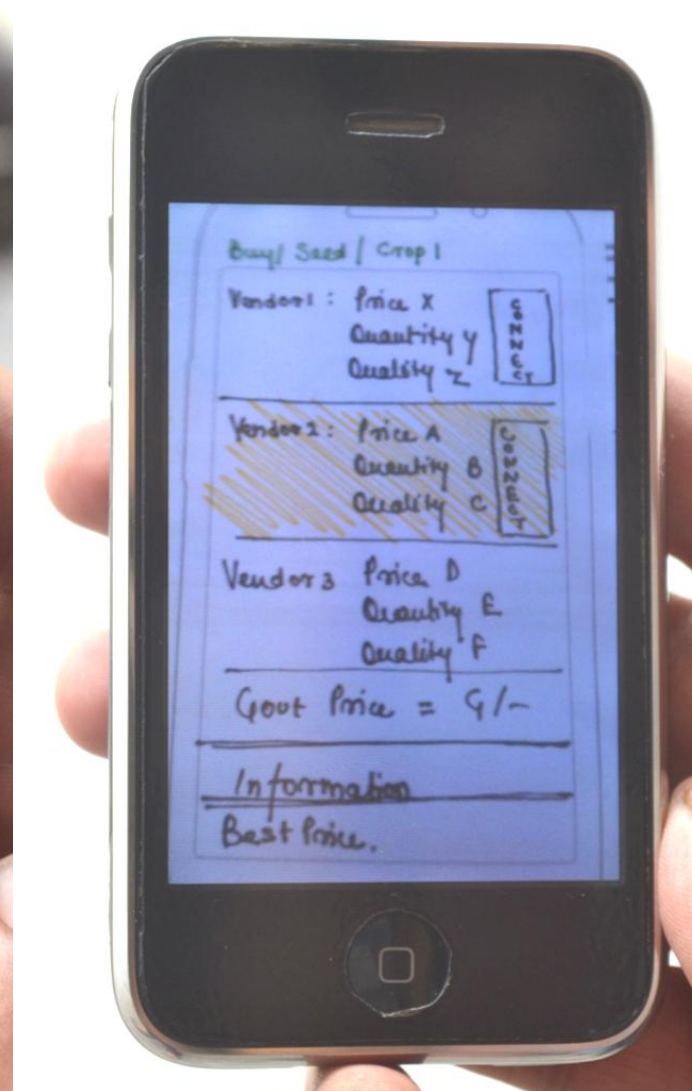 Buy/ Seed / Crop 1
Vendor1 : Price X
Quantity Y
Quality Z
CONNECT
Vendor2 : Price A
Quantity B
Quality C
CONNECT
Vendor3 Price D
Quantity E
Quality F
Govt Price = G/-
Information
Best Price.